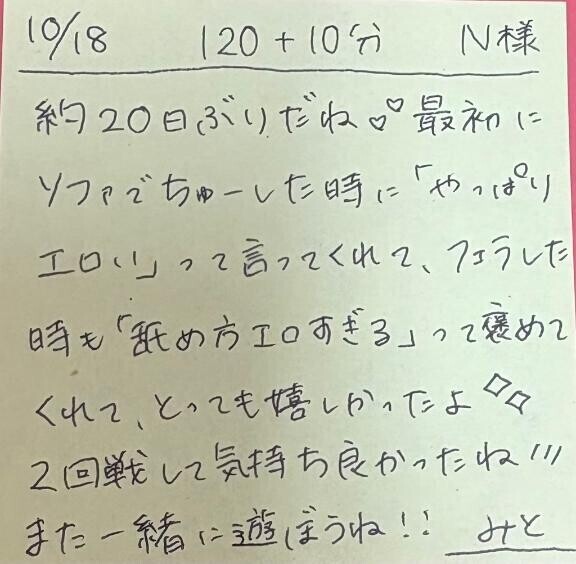 10/18 120+10分 N様
約20日ぶりだね♡♡最初に
ソファでちゅーした時に「やっぱり
エロい」って言ってくれて、フェラした
時も「舐め方エロすぎる」って褒めて
くれて、とっても嬉しかったよ◇◇
2回戦して気持ち良かったね!!!
また一緒に遊ぼうね!! みと